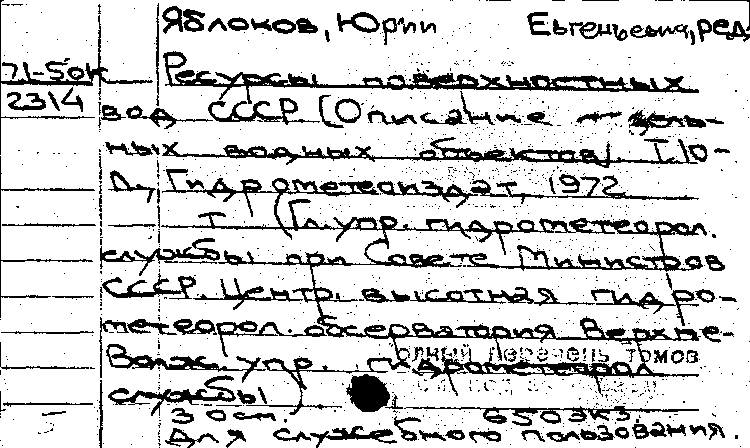 Яблоков, Юрий Евгеньевич, ред.
71-50к Ресурсы поверхностных
2314 вод СССР [Описание
ных водных объектов]. Т.10-
Л., Гидрометеоиздат, 1972
т (Гл. упр. гидрометеорол.
службы при Совете Министров
СССР. Центр. высотная гидро-
метеорол. обсерватория Верхне-
Волж. упр. гидрометеорол
олный перечень томов
службы)
650 экз.
Для служебного пользования.